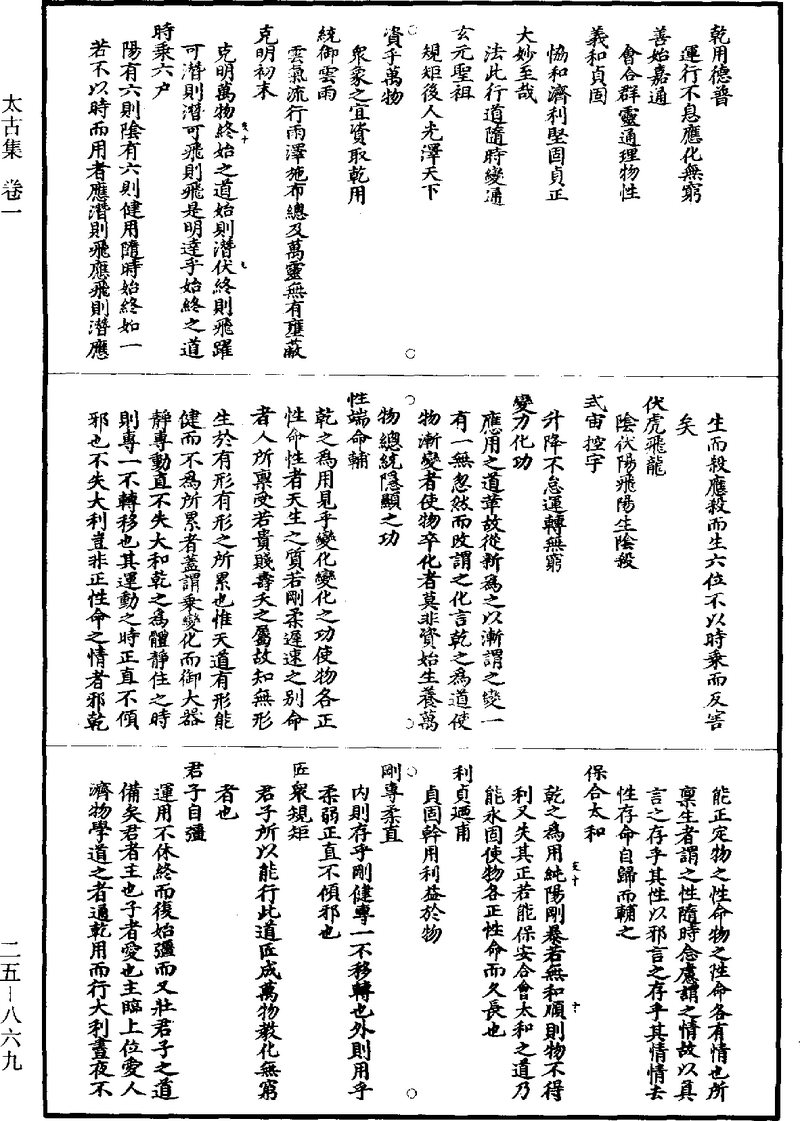 太古集　卷一
乾用德普
運行不息應化無窮
善始嘉通
會合群靈通理物性
義和貞固
恊和濟利堅固貞正
大妙至哉
法此行道隨時變通
玄元聖祖
規矩後人光澤天下
資乎萬物
衆彖之宜資取乾用
統御雲雨
雲氣流行雨澤施布總及萬靈無有壅蔽
克明初末
克明萬物終始之道始則潛伏終則飛躍
可潛則潛可飛則飛是明達乎始終之道
時乘六户
陽有六則陰有六則健用隨時始終如一
若不以時而用者應潛則飛應飛則潛應
生而殺應殺而生六位不以時乘而反害
矣
伏虎飛龍
陰伏陽飛陽生陰殺
式宙控宇
升降不怠運轉無窮
變力化功
應用之道革故從新爲之以漸謂之變一
有一無忽然而改謂之化言乾之爲道使
物漸變者使物卒化者莫非資始生養萬
物總統隱顯之功
性端命輔
乾之爲用見乎變化變化之功使物各正
性命性者天生之質若剛柔遲速之别命
者人所禀受若貴賤壽夭之屬故知無形
生於有形有形之所累也惟天道有形能
健而不爲所累者蓋謂乘變化而御大器
靜專動直不失大和乾之爲體靜住之時
則專一不轉移也其運動之時正直不傾
邪也不失大利豈非正性命之情者邪乾
能正定物之性命物之性命各有情也所
禀生者謂之性隨時念慮謂之情故以真
言之存乎其性以邪言之存乎其情情去
性存命自歸而輔之
保合太和
乾之爲用純陽剛暴若無和順則物不得
利又失其正若能保安合會太和之道乃
能永固使物各正性命而久長也
利貞迺甫
貞固幹用利益於物
剛專柔直
内則存乎剛健專一不移轉也外則用乎
柔弱正直不傾邪也
匠衆規矩
君子所以能行此道匠成萬物教化無窮
者也
君子自彊
運用不休終而復始彊而又壯君子之道
備矣君者主也子者愛也主臨上位愛人
濟物學道之者通乾用而行大利晝夜不
二五－八六九